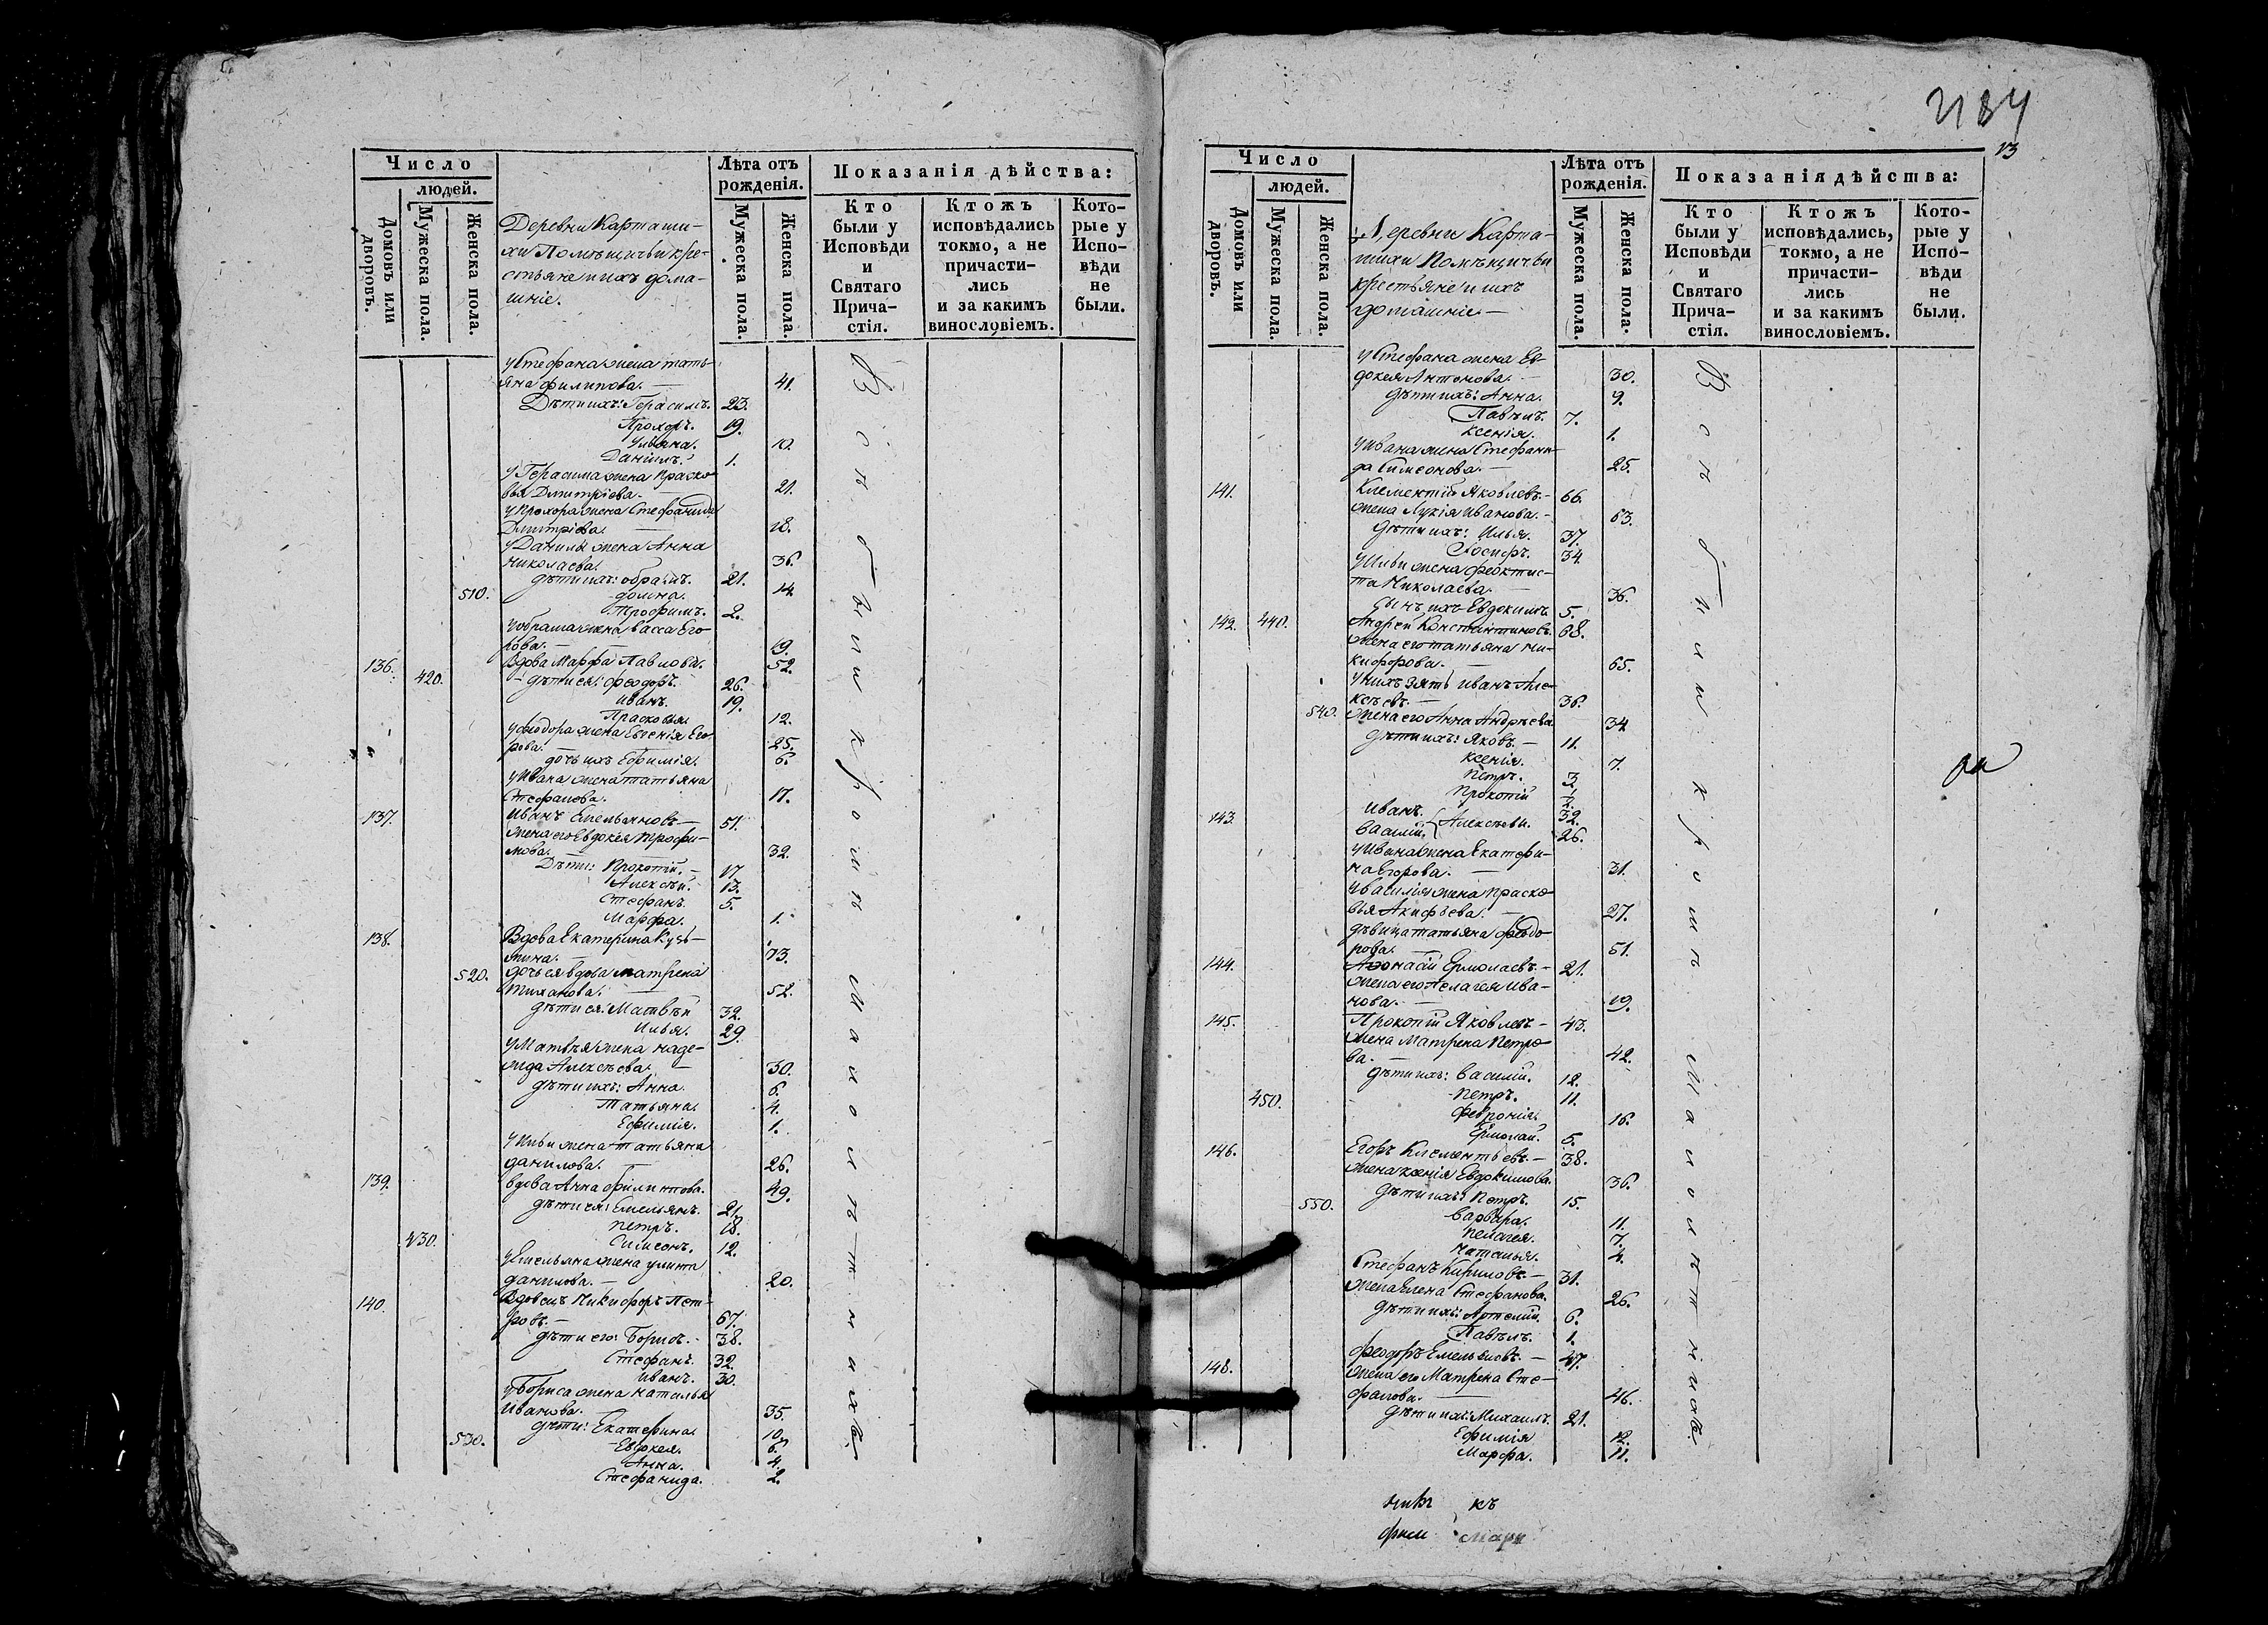 Число
людей.
Домовъ или дворовъ.
Мужеска пола.
Женска пола.
Деревни Карташи-
хи Помѣщичьи кре-
стьяне и ихъ дома-
шніе.
Лѣта отъ рожденія.
Мужеска пола.
Женска пола.
Показанія дѣйства:
Кто были у Исповѣди и Святаго Прича-стія.
Ктожъ исповѣдались токмо, а не причасти-лись и за какимъ винословіемъ.
Кото-рые у Испо-вѣди не были.
у Стефана жена тать-
яна филипова. 41.
Дѣти ихъ: Герасимъ. 23.
Прохоръ. 19.
Ульяна. 10.
Даніилъ. 1.
у Герасима жена Праско-
вья Дмитріева. 21.
у Прохора жена Стефанида
Дмитріева. 18.
у Данилы жена Анна
Николаева. 36.
дѣти ихъ: 21.
510. 14.
Трофимъ. 2.
жена васса Его-
рова. 19.
136. Вдова Марфа Павлова. 52.
420. дѣти ея: Феодоръ. 26.
Иванъ. 19.
Прасковья. 12.
у Феодора жена Евгенія Его-
рова. 25.
дочь ихъ Ефимія. 6.
у Ивана жена татьяна
Стефанова. 17.
137. Иванъ Емельяновъ 51.
жена его Евдокея Трофи-
мова. 32.
Дѣти: Прокопій. 17.
Алексѣй. 13.
Стефанъ. 5.
Марфа. 1.
138. Вдова Екатерина Кузь-
мина. 73.
520. дочь ея вдова матрена
52.
дѣти ея: Матвѣй 32.
Илья. 29.
у Матвѣя жена наде-
жда Алексѣева. 30.
дѣти ихъ: Анна. 6.
Татьяна. 4.
Ефимія. 1.
у Ильи жена татьяна
данилова. 26.
139. вдова Анна филипова. 49.
дѣти ея: Емельянъ. 21.
петръ. 18.
430. Симеонъ. 12.
у Емельяна жена улита
данилова. 20.
140. Вдовецъ Никифоръ Пет-
ровъ. 67.
дѣти его: Борисъ. 38.
Стефанъ. 32.
Иванъ. 30.
у Бориса жена наталья
Иванова. 35.
дѣти: Екатерина. 10.
530. Евдокея. 6.
Анна. 4.
Стефанида. 2.
Въ Великомъ
13
Число
людей.
Домовъ или дворовъ.
Мужеска пола.
Женска пола.
Деревни Карта-
шихи Помѣщичьи
крестьяне и ихъ
домашніе.
Лѣта отъ рожденія.
Мужеска пола.
Женска пола.
Показанія дѣйства:
Кто были у Исповѣди и Святаго Прича-стія.
Ктожъ исповѣдались, токмо, а не причасти-лись и за какимъ винословіемъ.
Кото-рые у Испо-вѣди не были.
у Стефана жена Ев-
докея Антонова. 30.
дѣти ихъ: Анна. 9.
Павелъ. 7.
Ксенія. 1.
у Ивана жена Стефани-
да Симеонова. 25.
141. Клементій Яковлевъ. 66.
жена Лукія Иванова. 63.
дѣти ихъ: Илья. 37.
Іосифъ. 34.
у Ильи жена феоктис-
та Николаева. 36.
сынъ ихъ Евдокимъ. 5.
142. 440. Андрей Константиновъ. 68.
жена его татьяна ни-
кифорова. 65.
у нихъ зять иванъ Але-
ксѣевъ. 36.
540. жена его Анна Андрѣева. 34
дѣти ихъ: Яковъ. 11.
ксенія. 7.
петръ. 3.
прокопій
143. Иванъ. 32.
Василій. Алексѣевы. 26.
у Ивана жена Екатери-
на Егорова. 31.
у василія жена праско-
вья Акифьева. 27.
дѣвица татьяна феодо-
рова. 51.
144. Афонасій Ермолаевъ. 21.
жена его Пелагея ива-
нова. 19.
145. Прокопій Яковлевъ 43.
жена матрена петро-
ва. 42.
дѣти ихъ: василій. 12.
450. петръ. 11.
февронія. 16.
Ермолай. 5.
146. Егоръ Клементьевъ. 38.
жена ксенія Евдокимова. 36.
550. дѣти ихъ: петръ. 15.
варвара. 11.
пелагея. 7.
наталья. 4.
Стефанъ Кириловъ 31.
жена Елена Стефанова. 26.
дѣти ихъ: Артемій. 6.
Павелъ. 1.
148. феодоръ Емельяновъ. 47.
жена его Матрена Сте-
фанова. 46.
дѣти ихъ: Михаилъ. 21.
Ефимія 12.
Марфа. 11.
къ